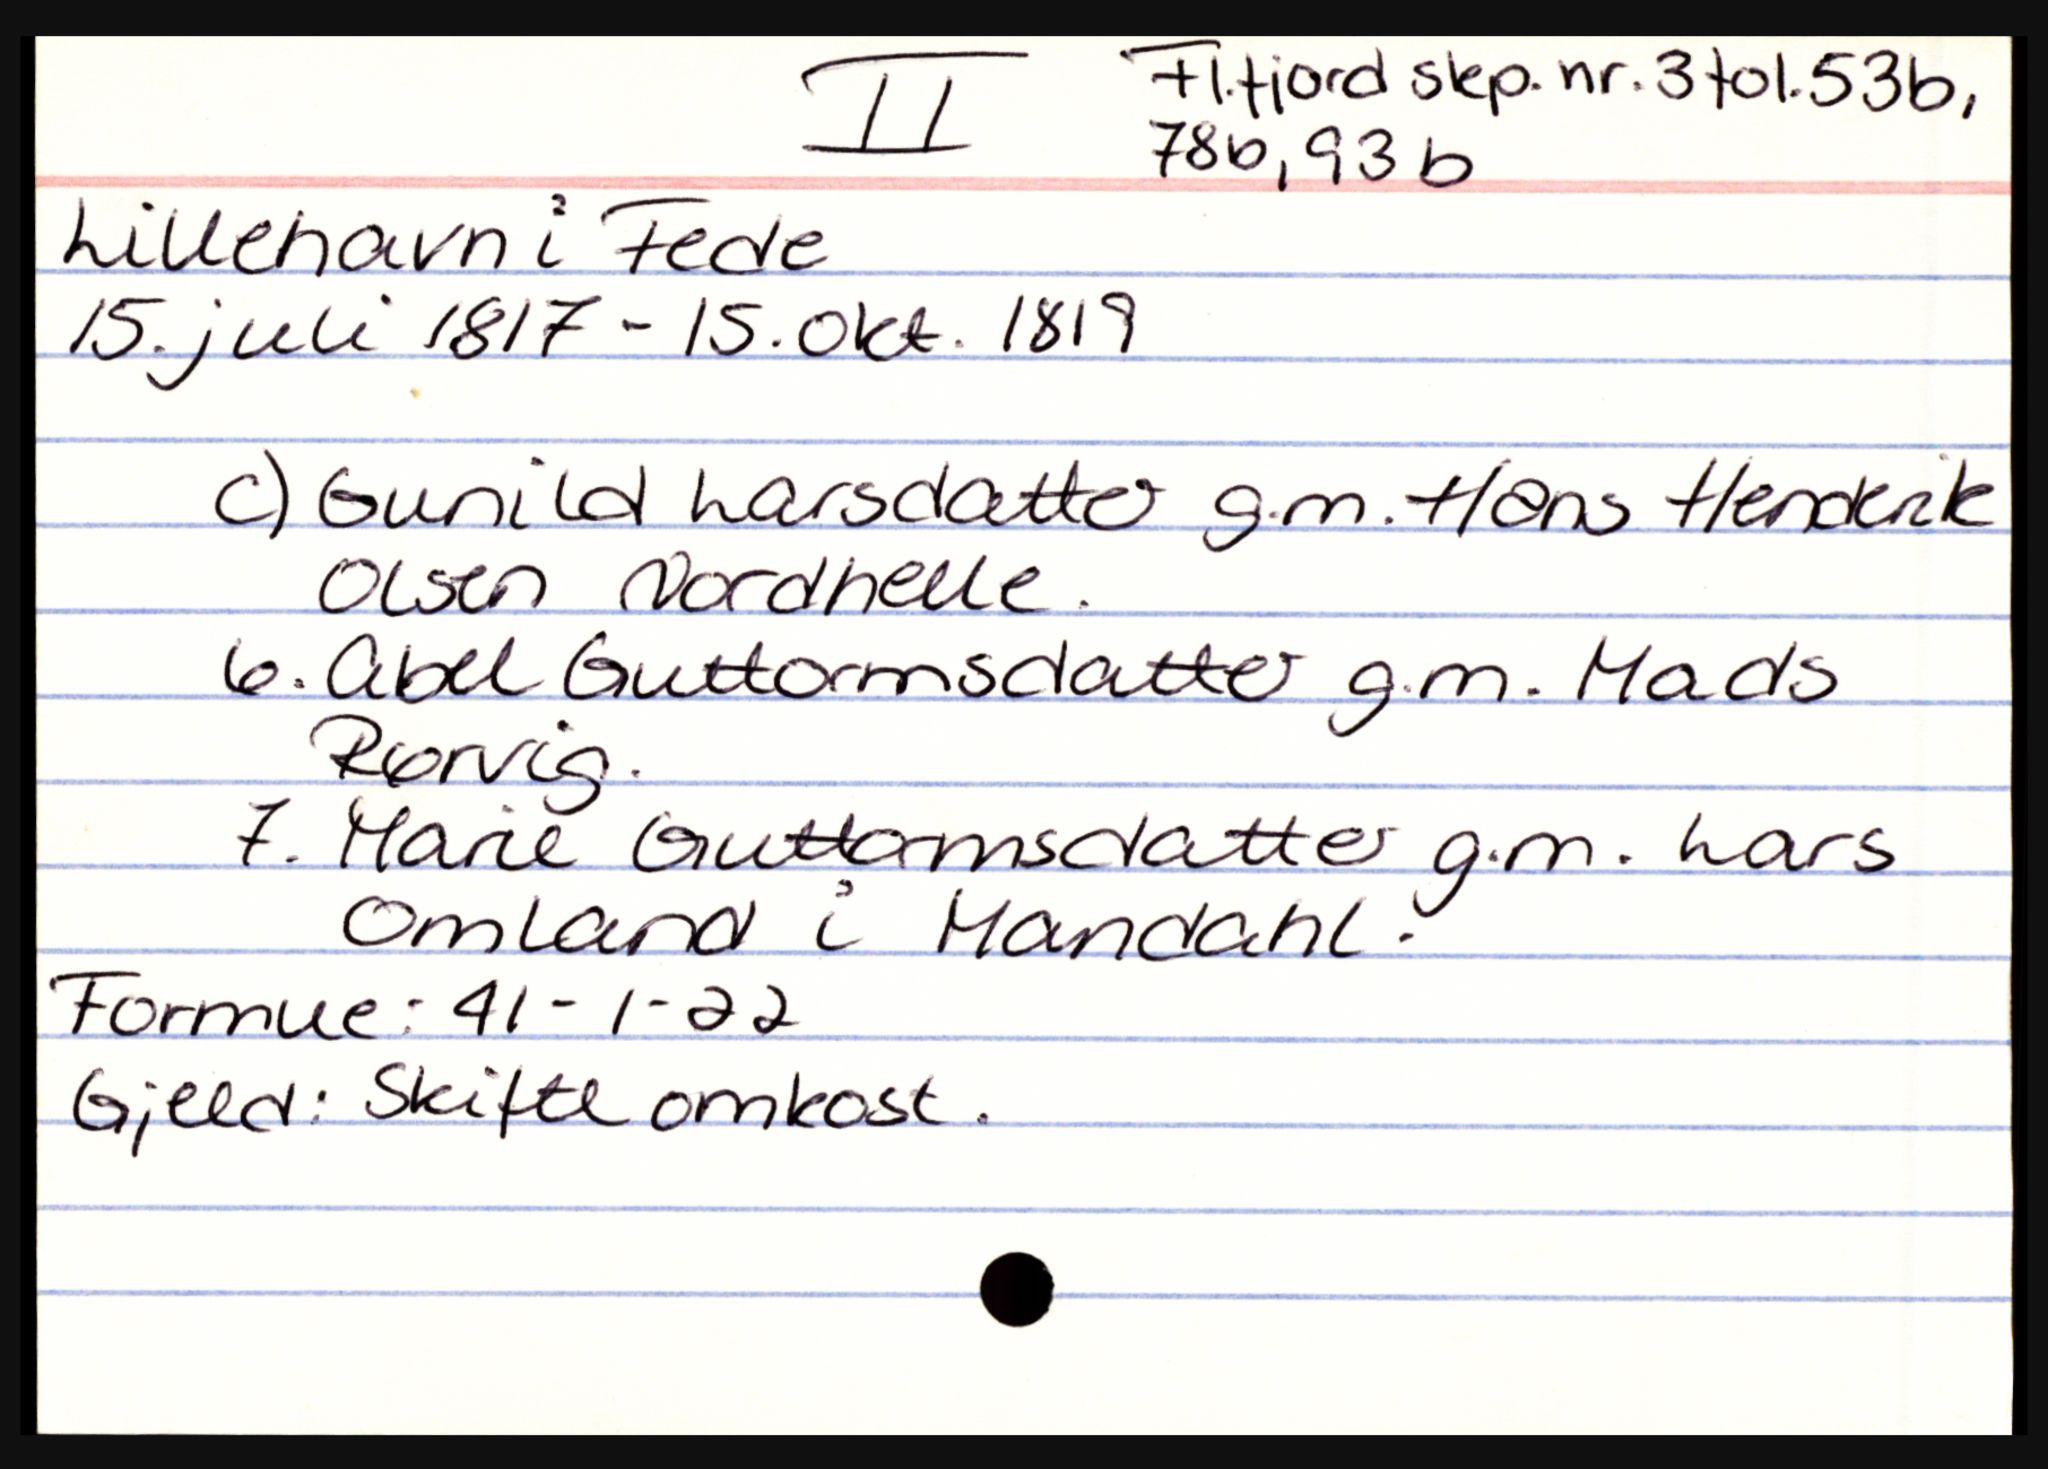 II
Fl.fjord skp. nr. 3 fol. 53b,
78b, 93b
Lillehavn i Fede
15. juli 1817 - 15. okt. 1819
c) Gunild Larsdatter g.m. Hans Henderik
Olsen Nordhelle.
6. Abel Guttormsdatter g.m. Mads
Rørvig.
7. Marie Guttormsdatter g.m. Lars
Omland i Mandahl.
Formue: 41 - 1 - 22
Gjeld: Skifte omkost.